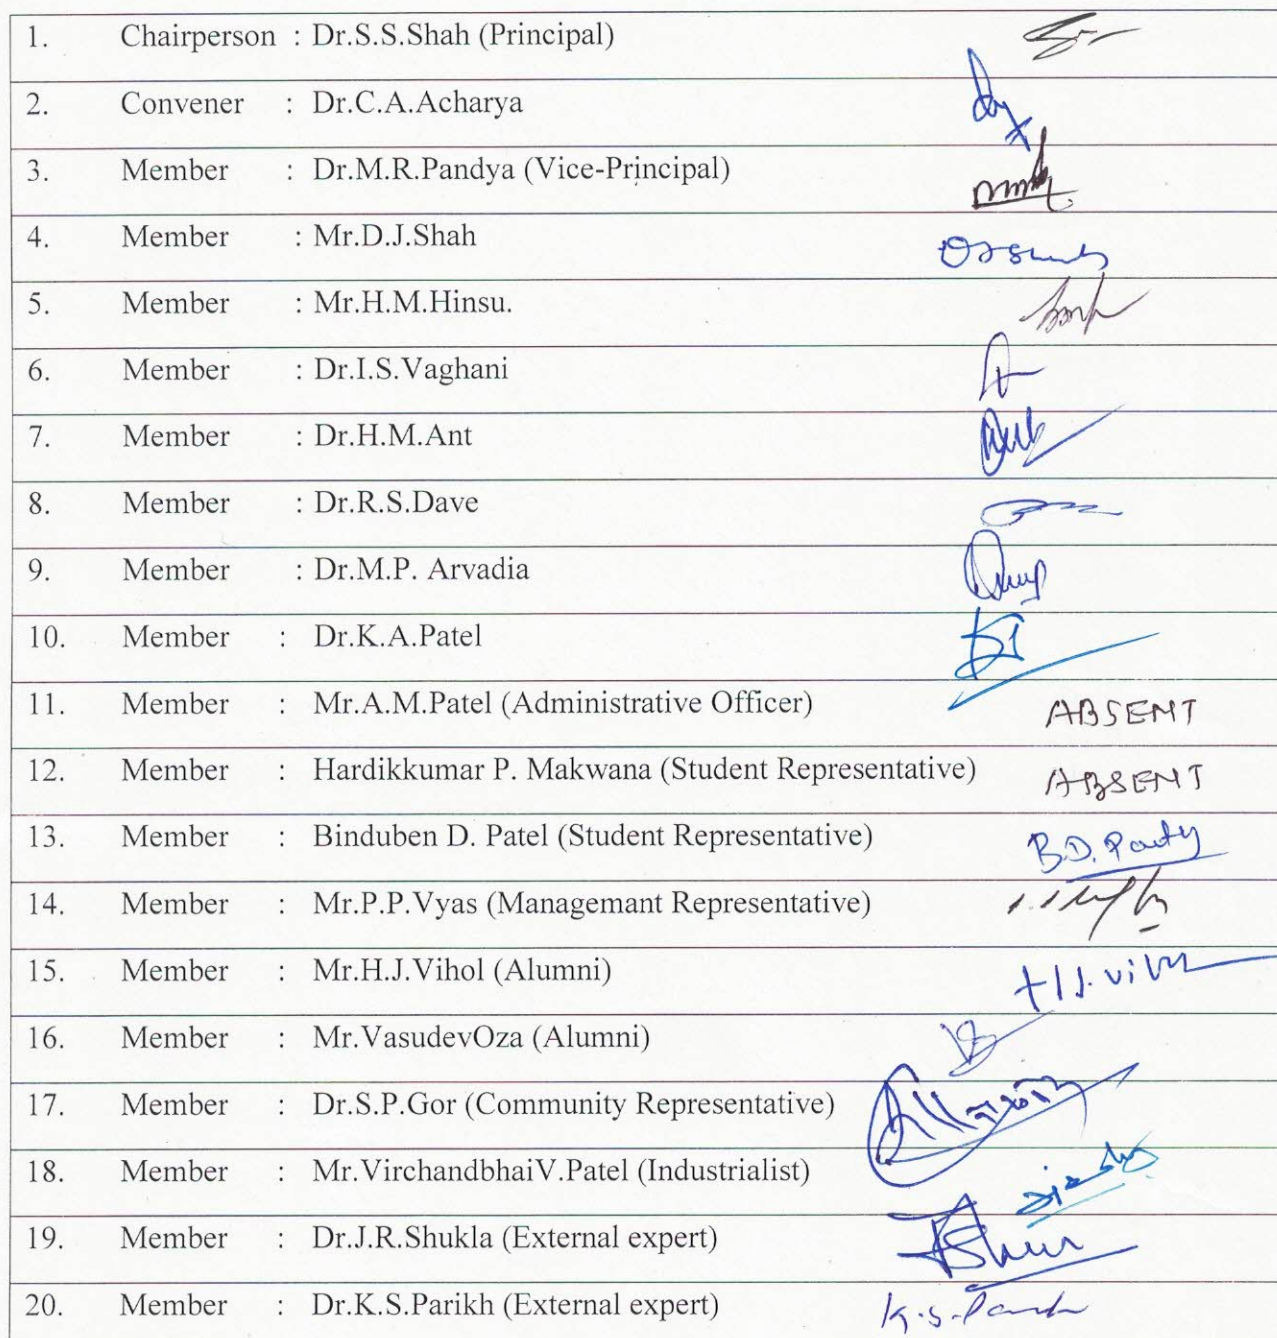 1. Chairperson : Dr.S.S.Shah (Principal)
2. Convener : Dr.C.A.Acharya
3. Member : Dr.M.R.Pandya (Vice-Principal)
4. Member : Mr.D.J.Shah
5. Member : Mr.H.M.Hinsu.
6. Member : Dr.I.S.Vaghani
7. Member : Dr.H.M.Ant
8. Member : Dr.R.S.Dave
9. Member : Dr.M.P. Arvadia
10. Member : Dr.K.A.Patel
11. Member : Mr.A.M.Patel (Administrative Officer) ABSENT
12. Member : Hardikkumar P. Makwana (Student Representative) ABSENT
13. Member : Binduben D. Patel (Student Representative) B.D.
14. Member : Mr.P.P.Vyas (Managemant Representative)
15. Member : Mr.H.J.Vihol (Alumni)
16. Member : Mr.VasudevOza (Alumni)
17. Member : Dr.S.P.Gor (Community Representative)
18. Member : Mr.VirchandbhaiV.Patel (Industrialist)
19. Member : Dr.J.R.Shukla (External expert)
20. Member : Dr.K.S.Parikh (External expert) K.S.